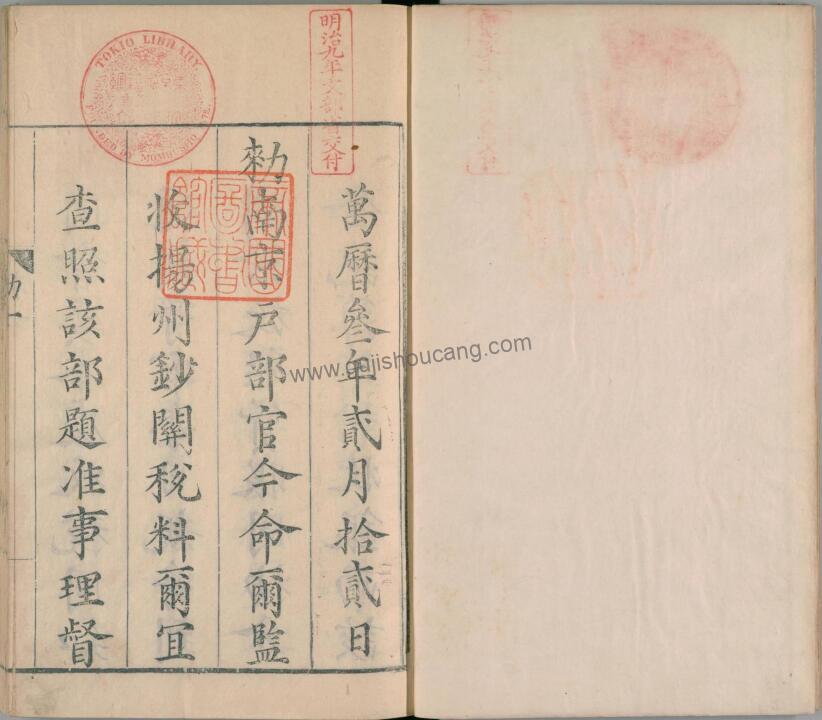 萬曆叄年貳月拾貳日
勑南京戶部官今命爾監
收揚州鈔關稅料爾宜
查照該部題准事理督
勑一
明治九年文部省交付
TOKIO LIBRARY
www.gujishoucang.com